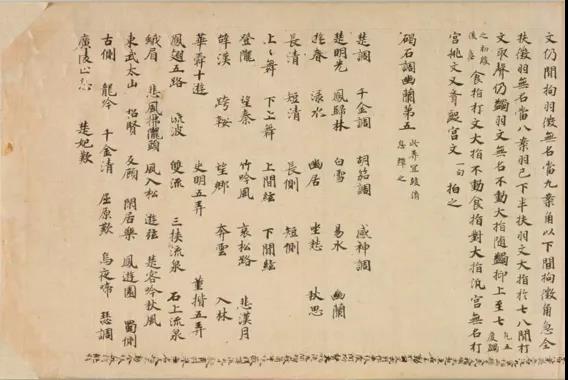 文仍閒拘羽徵無名當九案角以下閒拘徵角急全
扶徵羽無名當八案羽已下半扶羽文大指於七八間打
文取聲仍蠲羽文無名不動大指隨蠲抑上至七
之初緩後急食指打文大指不動食指對大指汎宮無名打
宮挑文文齪宮文一句拍之
碣石調幽蘭第五 此弄宜緩消息彈之
楚調 千金調 胡笳調 感神調
楚明光 鳳歸林 白雪 易水 幽蘭
遊春 淥水 幽居 坐愁 秋思
長清 短清 長側 短側
上上舞 下上舞 上間絃 下間絃
登隴 望秦 竹吟風 哀松路 悲漢月
辭漢 跨鞍 望鄉 奔雲 入林
華舜十遊 史明五弄 董揩五弄
鳳翅五路 流波 雙流 三挾流泉 石上流泉
蛾眉 悲風拂隴頭 風入松 遊絃 楚客吟秋風
東武太山 招賢 反顧 閑居樂 鳳遊園 蜀側
古側 龍吟 千金清 屈原歎 烏夜啼 瑟調
廣陵止息 楚妃歎